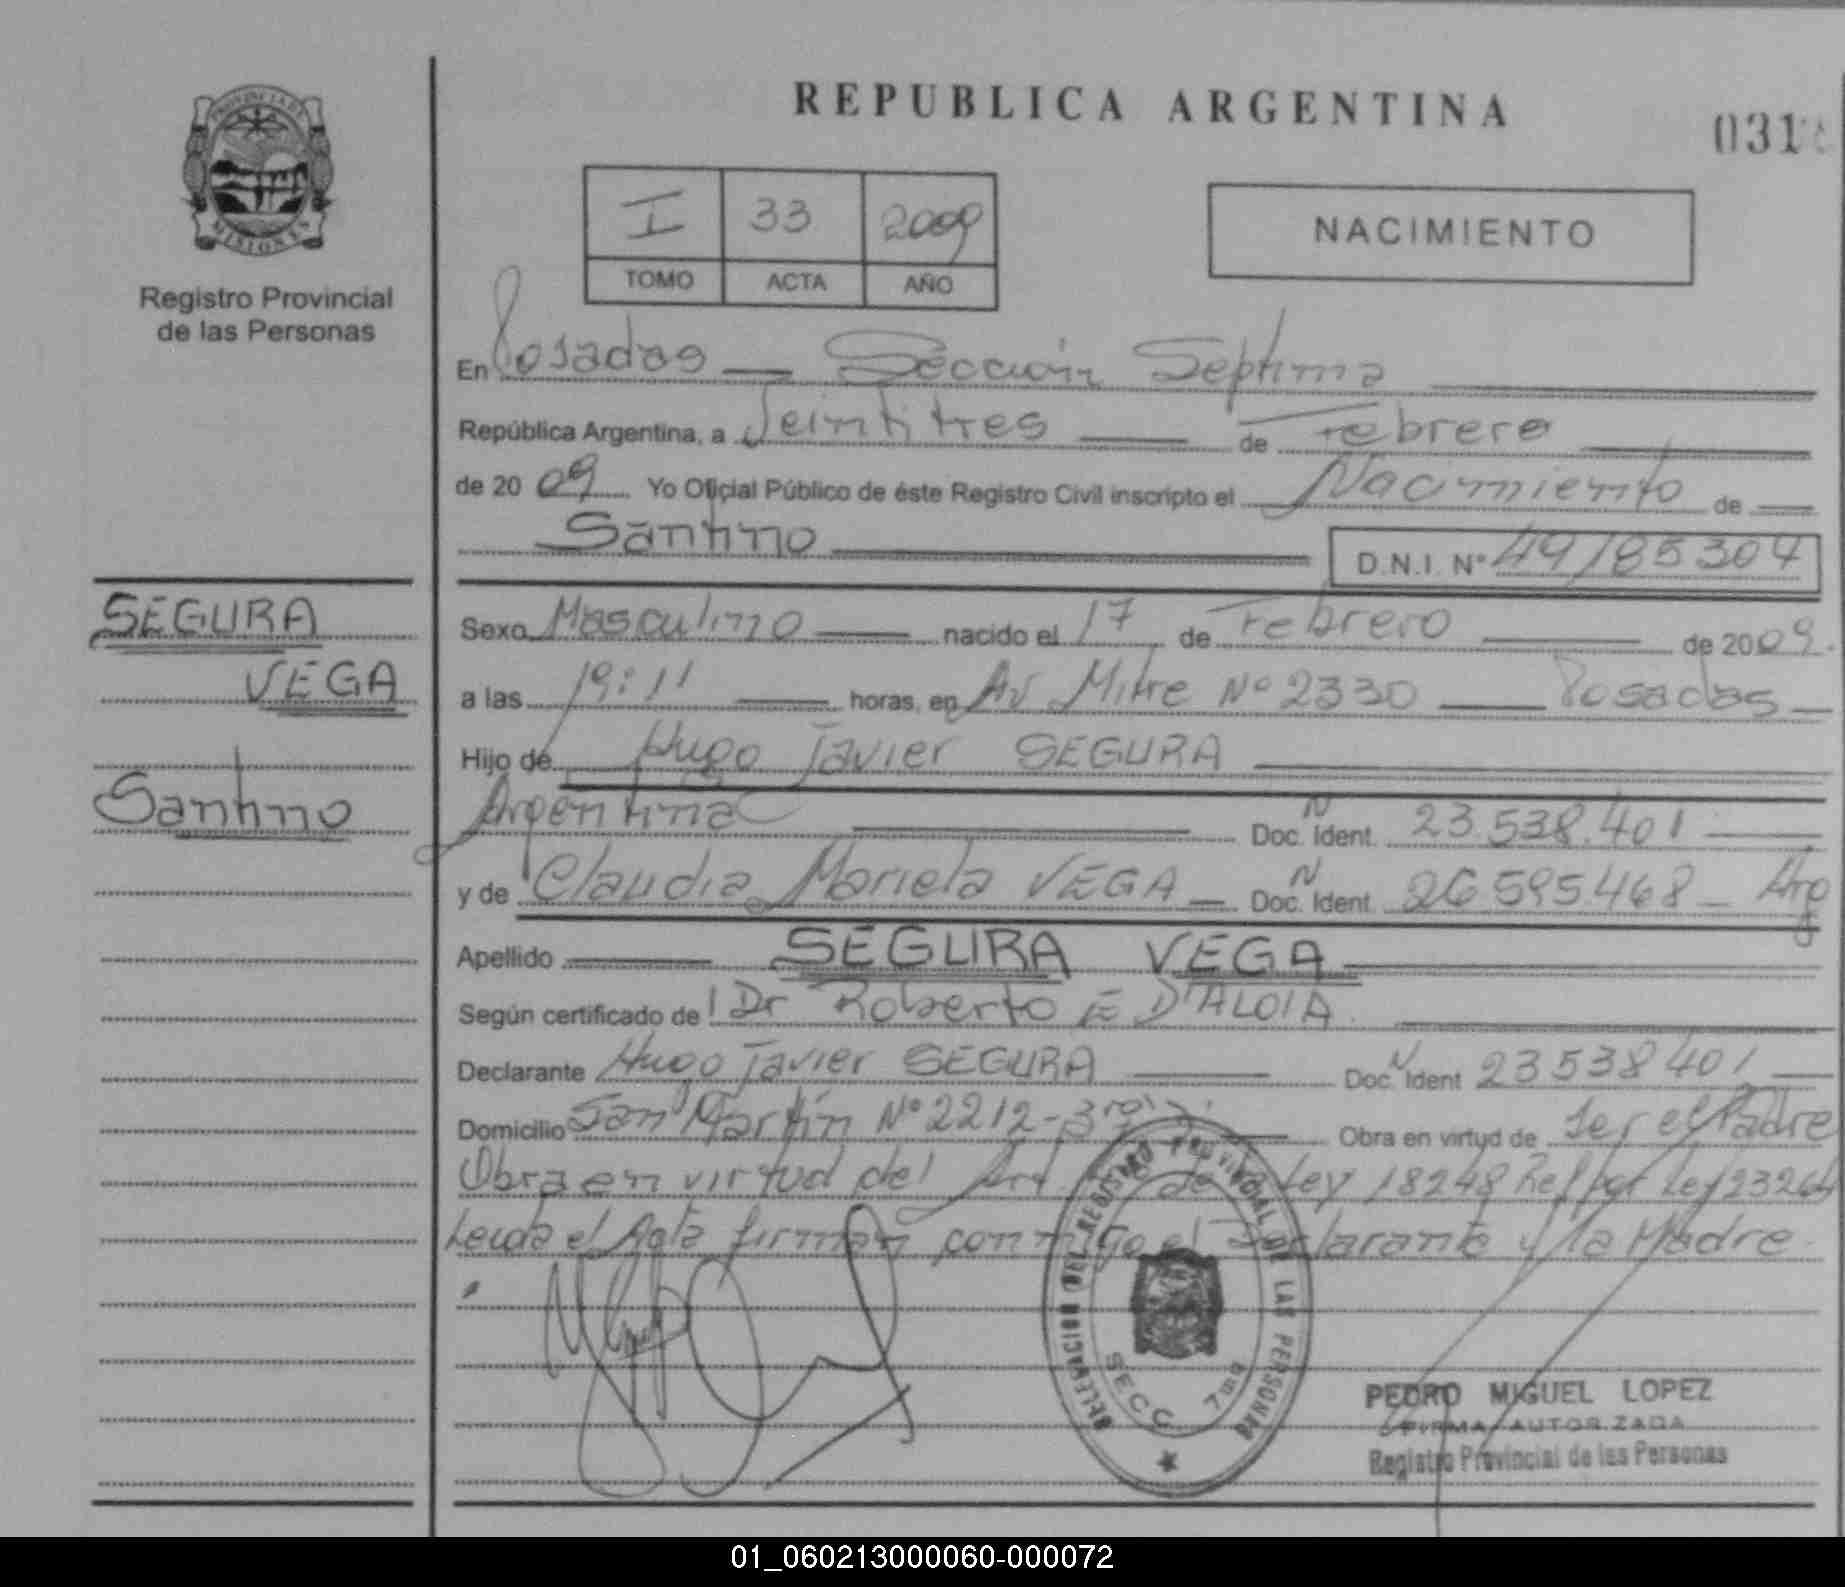 REPUBLICA ARGENTINA
031
PROVINCIA DE
MISIONES
Registro Provincial
de las Personas
I 33 2009
TOMO ACTA AÑO
NACIMIENTO
En Posadas — Sección Septima
República Argentina, a Veintitres de Febrero
de 20 09 Yo Oficial Público de éste Registro Civil inscripto el Nacimiento de
Santino D.N.I. N° 49185304
SEGURA
VEGA
Santino
Sexo Masculino nacido el 17 de Febrero de 2009.
a las 19:11 horas, en Av Mitre N° 2330 — Posadas —
Hijo de Hugo Javier SEGURA
Argentina Doc. Ident. N 23.538.401
y de Claudia Mariela VEGA — Doc. Ident. N 26.595.468 — Arg
Apellido SEGURA VEGA
Según certificado de Dr Roberto E D'ALOIA
Declarante Hugo Javier SEGURA Doc. Ident N 23538401
Domicilio San Martín N° 2212- Obra en virtud de Ser el Padre
Obra en virtud del Art. de Ley 18248 Ref por Ley 23264
Leida el Acta firman conmigo el Declarante y la Madre.
DELEGACION DEL REGISTRO PROVINCIAL DE LAS PERSONAS
SECC. 7ma
PEDRO MIGUEL LOPEZ
FIRMA AUTORIZADA
Registro Provincial de las Personas
01_060213000060-000072